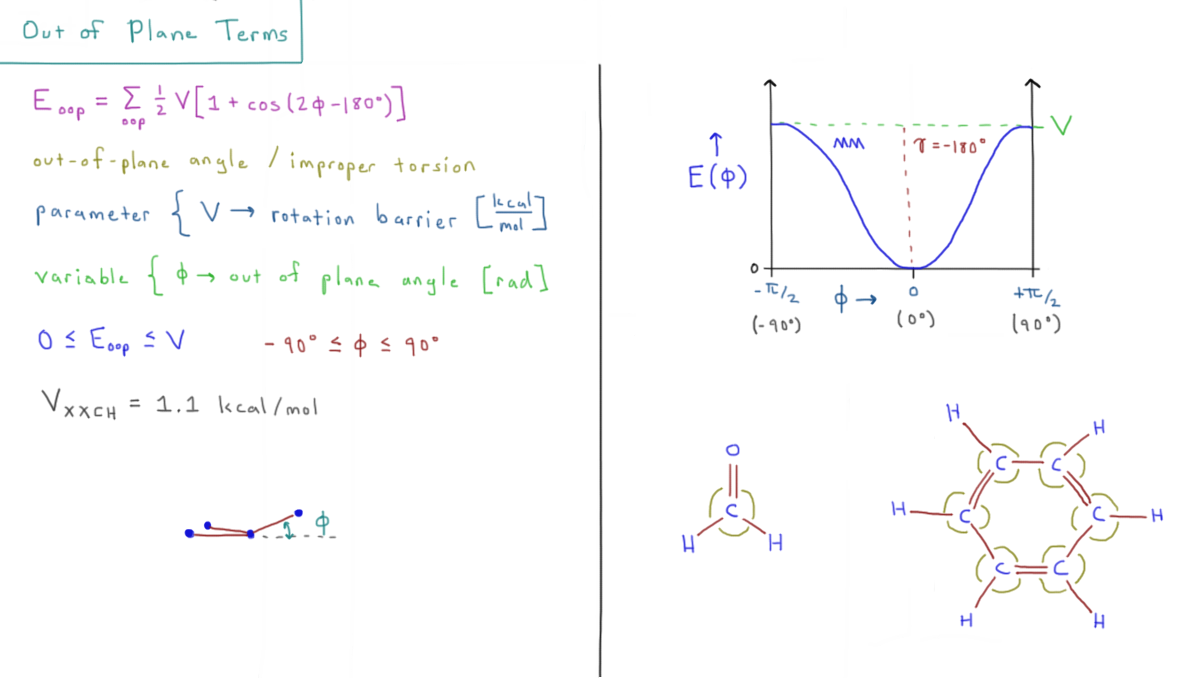 Out of Plane Terms
E oop = Σ oop ½ V[1 + cos(2ϕ-180°)]
out-of-plane angle / improper torsion
parameter { V → rotation barrier [kcal/mol]
variable { ϕ → out of plane angle [rad]
0 ≤ Eoop ≤ V -90° ≤ ϕ ≤ 90°
VXXCH = 1.1 kcal/mol
ϕ
V
MM γ=-180°
↑
E(ϕ)
0
-π/2 ϕ → 0 +π/2
(-90°) (0°) (90°)
O
C
H H
H H
C C
H C C H
C C
H H